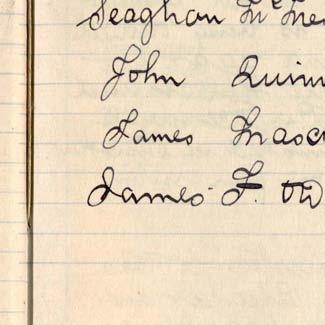 Seaghan McMe
John Quinn
James Masc
James F. O'D